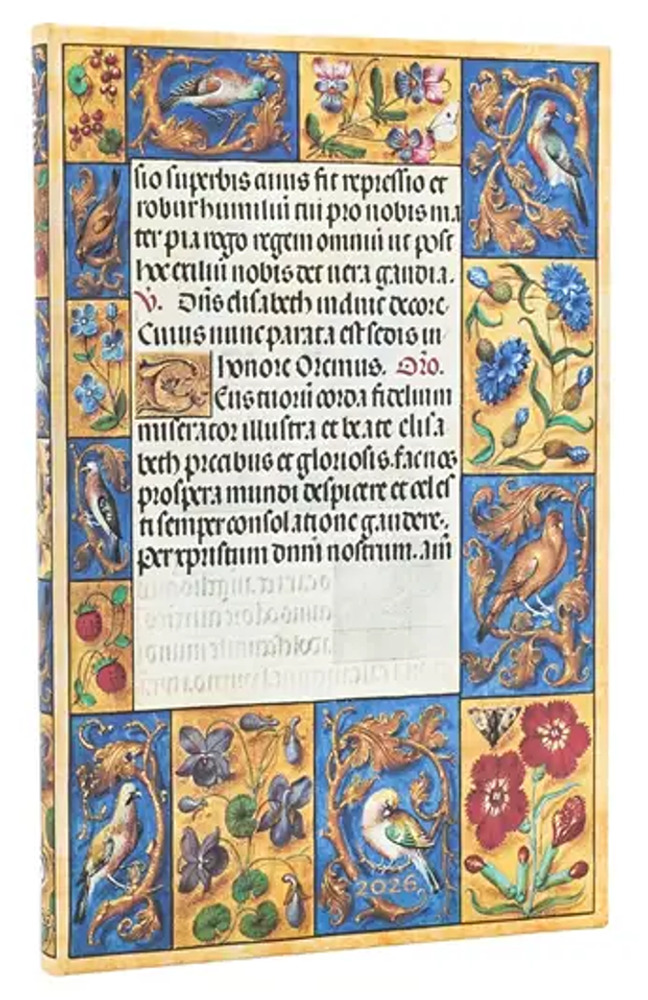 sio superbis auiis fit repressio et
robur humiliū cui pro nobis ma
ter pia rogo regem omniū ut post
hoc exiliū nobis det uera gaudia.
V. Diis elisabeth induit decore
Cuius nunc parata est sedis in
honore Oremus. Oro.
Deus tuorū corda fidelium
miserator illustra et beate elisa
beth precibus et gloriosis. fac nos
prospera mundi despicere et celes
ti semper consolatione gaudere.
Per xpristum dnm nostrum. am
2026